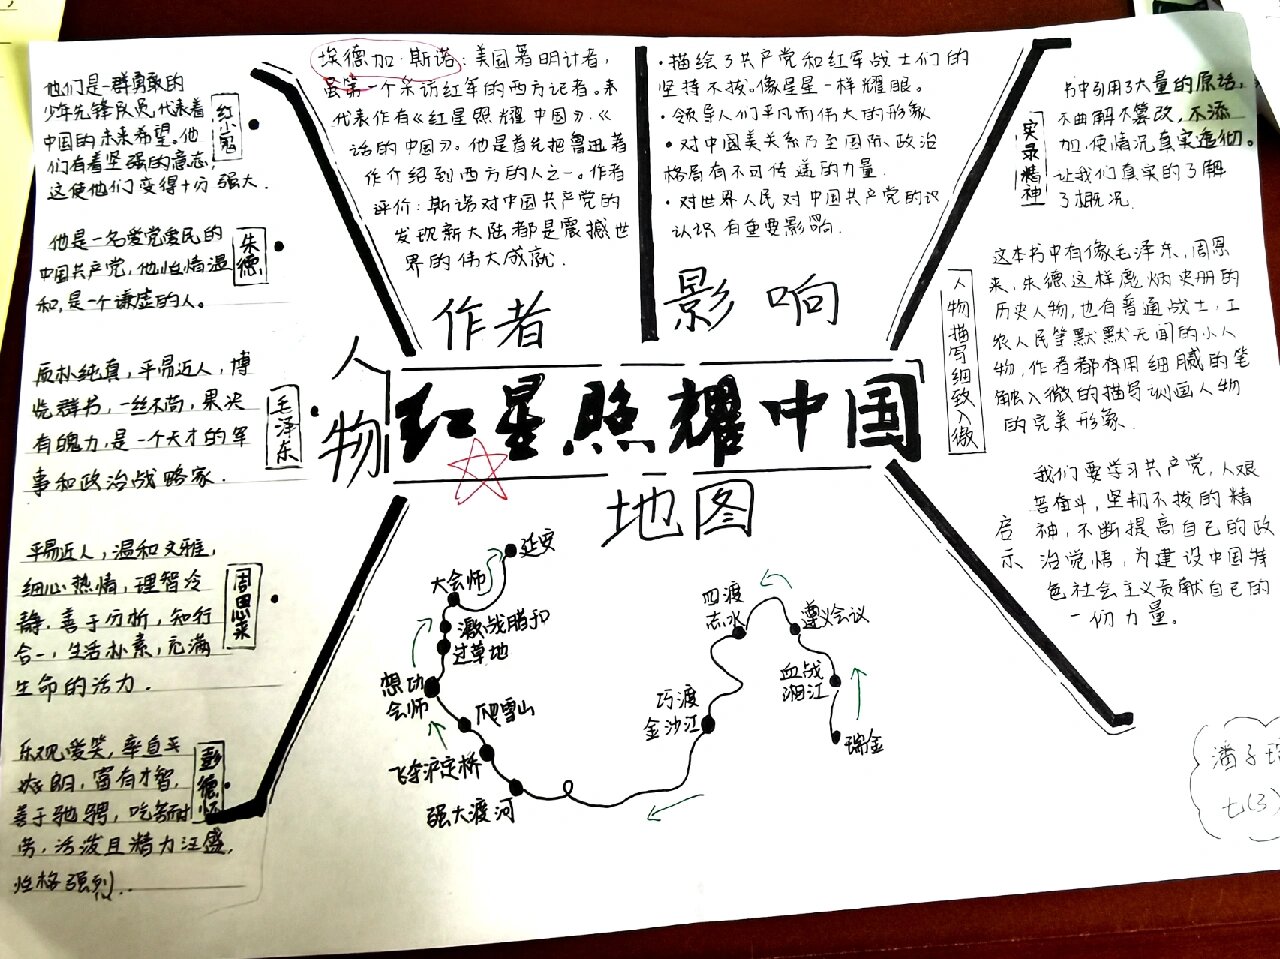 他们是一群勇敢的
少年先锋队员,代表着
中国的未来希望。他
们有着坚强的意志,
这使他们变得十分强大.
红小鬼
他是一名爱党爱民的
中国共产党,他性情温
和,是一个谦虚的人。
朱德
质朴纯真,平易近人,博
览群书,一丝不苟,果决
有魄力,是一个天才的军
事和政治战略家.
毛泽东
平易近人,温和文雅,
细心热情,理智冷
静.善于分析,知行
合一,生活朴素,充满
生命的活力.
周恩来
乐观爱笑,率直平
爽朗,富有才智,
善于驰骋,吃苦耐
劳,活泼且精力汪盛,
性格强烈..
彭德怀
人物
埃德加·斯诺:美国著明记者,
是第一个采访红军的西方记者。来
代表作有《红星照耀中国》.《
话的中国》。他是首先把鲁迅著
作介绍到西方的人之一。作者
评价:斯诺对中国共产党的
发现新大陆都是震撼世
界的伟大成就.
作者
·描绘了共产党和红军战士们的
坚持不拔.像星星一样耀眼。
·领导人们平凡而伟大的形象
·对中国美关系乃至国际政治
格局有不可传递的力量.
·对世界人民对中国共产党的识
认识有重要影响.
影响
红星照耀中国
书中引用了大量的原话,
不曲解不篡改,不添
加,使情况真实透彻。
让我们真实的了解
了概况.
实录精神
这本书中有像毛泽东,周恩
来,朱德这样彪炳史册的
历史人物,也有普通战士,工
农人民等默默无闻的小人
物,作者都有用细腻的笔
触入微的描写刻画人物
的完美形象.
人物描写细致入微
我们要学习共产党,人艰
苦奋斗,坚韧不拔的精
神,不断提高自己的政
治觉悟,为建设中国特
色社会主义贡献自己的
一份力量。
启示
地图
延安
大会师
激战腊子口
过草地
懋功
会师
爬雪山
飞夺泸定桥
强大渡河
巧渡
金沙江
四渡
赤水
遵义会议
血战
湘江
瑞金
潘子
七(3)